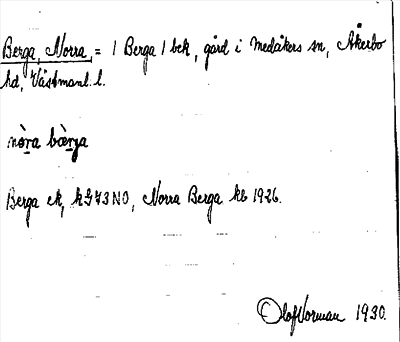 Berga, Norra, = 1 Berga 1 bek, gård i Medåkers sn, Åkerbo
hd, Västmanl. l.
nòra bæ̀rja
Berga ek, k G 73 NO, Norra Berga kb 1926.
Olof Norman 1930.